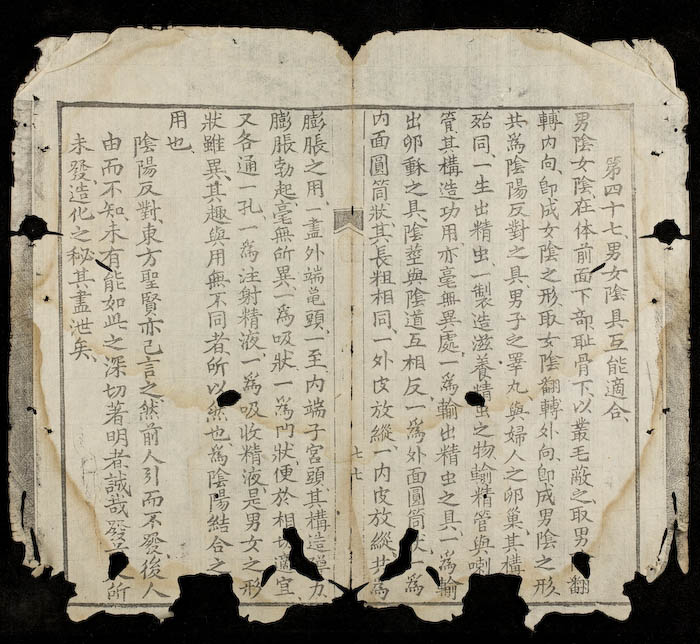 第四十七、男女陰具互能適合、
男陰女陰、在体前面下部、耻骨下、以叢毛蔽之、取男翻
轉内向、卽成女陰之形、取女陰翻轉外向、卽成男陰之形、
共爲陰陽反對之具、男子之睪丸、與婦人之卵巢、其構
殆同、一生出精虫、一製造滋養精虫之物、輸精管與喇
管、其構造功用、亦毫無異處、一爲輸出精虫之具、一爲輸
出卵酥之具、陰莖與陰道互相反、一爲外面圓筒狀、一爲
内面圓筒狀、其長粗相同、一外皮放縱、一内皮放縱、共爲
七七
膨脹之用、一盡外端亀頭、一至内端子宮頭、其構造力、
膨脹勃起、毫無所異、一爲吸狀、一爲門狀、便於相適宜、
又各通一孔、一爲注射精液、一爲吸收精液、是男女之形
狀雖異、其趣與用無不同者、所以然也、爲陰陽結合之
用也、
陰陽反對、東方聖賢、亦已言之、然前人引而不發、後人
由而不知、未有能如此之深切著明者、誠哉發所
未發、造化之秘、其盡泄矣、